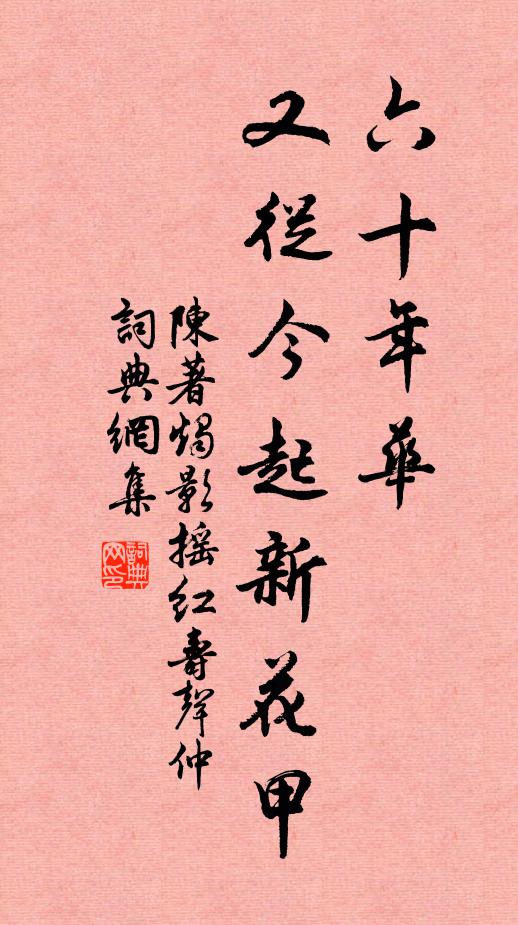 六十年華
又從今起新花甲
陳著燭影搖紅壽聲仲
詞典網集
詞典網印